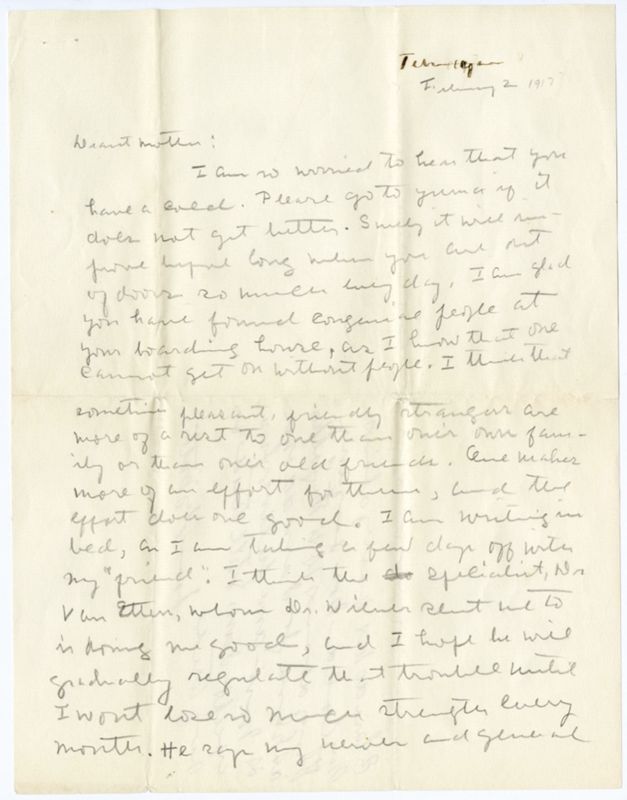 February 2 1917
Dearest Mother:
I am so worried to hear that you
have a cold. Please go to Yuma if it
does not get better. Surely it will im-
prove before long when you are out
of doors so much every day. I am glad
you have found congenial people at
your boarding house, as I know that one
cannot get on without people. I think that
sometimes pleasant, friendly strangers are
more of a rest to one than one's own fam-
ily or than one's old friends. One makes
more of an effort for them, and the
effort does one good. I am writing in
bed, as I am taking a few days off with
my "friend". I think the specialist, Dr
Van Etten, whom Dr. Wilmer sent me to
is doing me good, and I hope he will
gradually regulate that trouble until
I wont lose so much strength every
month. He says my nerves and general